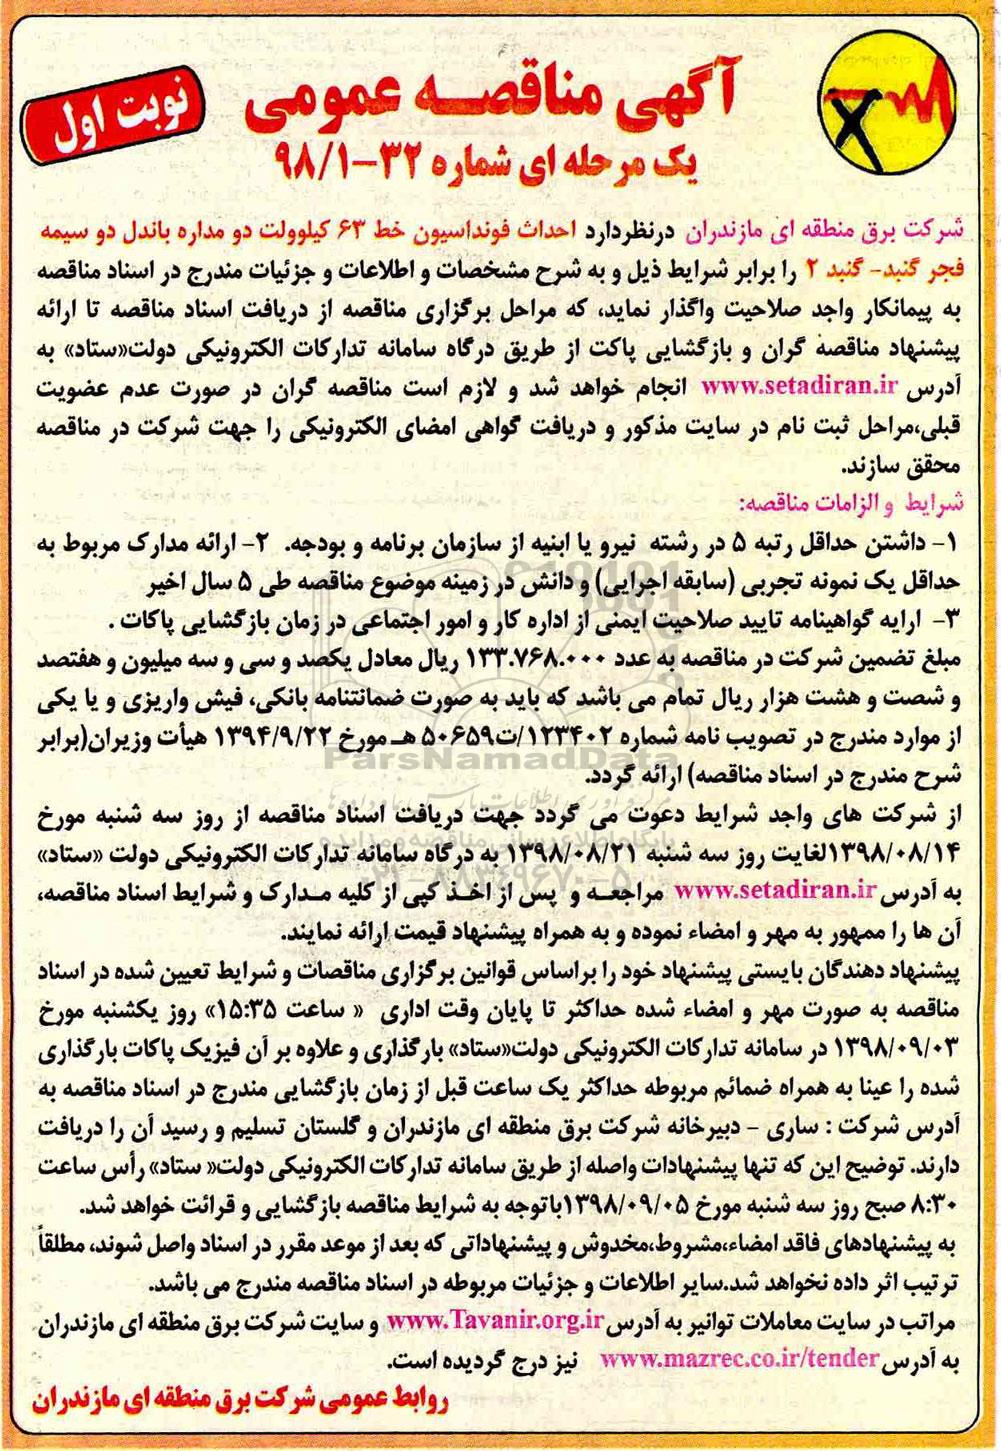 آگهی مناقصه عمومی
نوبت اول
یک مرحله ای شماره ۳۲-۹۸/۱
شرکت برق منطقه ای مازندران درنظردارد احداث فونداسیون خط ۶۳ کیلوولت دو مداره باندل دو سیمه
فجر گنبد- گنبد ۲ را برابر شرایط ذیل و به شرح مشخصات و اطلاعات و جزئیات مندرج در اسناد مناقصه
به پیمانکار واجد صلاحیت واگذار نماید، که مراحل برگزاری مناقصه از دریافت اسناد مناقصه تا ارائه
پیشنهاد مناقصه گران و بازگشایی پاکت از طریق درگاه سامانه تدارکات الکترونیکی دولت«ستاد» به
آدرس www.setadiran.ir انجام خواهد شد و لازم است مناقصه گران در صورت عدم عضویت
قبلی،مراحل ثبت نام در سایت مذکور و دریافت گواهی امضای الکترونیکی را جهت شرکت در مناقصه
محقق سازند.
شرایط و الزامات مناقصه:
۱- داشتن حداقل رتبه ۵ در رشته نیرو یا ابنیه از سازمان برنامه و بودجه. ۲- ارائه مدارک مربوط به
حداقل یک نمونه تجربی (سابقه اجرایی) و دانش در زمینه موضوع مناقصه طی ۵ سال اخیر
۳- ارایه گواهینامه تایید صلاحیت ایمنی از اداره کار و امور اجتماعی در زمان بازگشایی پاکات .
مبلغ تضمین شرکت در مناقصه به عدد ۱۳۳.۷۶۸.۰۰۰ ریال معادل یکصد و سی و سه میلیون و هفتصد
و شصت و هشت هزار ریال تمام می باشد که باید به صورت ضمانتنامه بانکی، فیش واریزی و یا یکی
از موارد مندرج در تصویب نامه شماره ۱۲۳۴۰۲/ت۵۰۶۵۹ هـ مورخ ۱۳۹۴/۹/۲۲ هیأت وزیران(برابر
ParsNamadData
شرح مندرج در اسناد مناقصه) ارائه گردد.
از شرکت های واجد شرایط دعوت می گردد جهت دریافت اسناد مناقصه از روز سه شنبه مورخ
پایگاه اطلاع رسانی مناقصه و مزایده
۱۳۹۸/۰۸/۱۴لغایت روز سه شنبه ۱۳۹۸/۰۸/۲۱ به درگاه سامانه تدارکات الکترونیکی دولت «ستاد»
۰۲۱-۸۸۳۴۹۶۷۰-۵
به آدرس www.setadiran.ir مراجعـه و پس از اخـذ کپی از کلیه مـدارک و شرایط اسناد مناقصه،
آن ها را ممهور به مهر و امضاء نموده و به همراه پیشنهاد قیمت ارائه نمایند.
پیشنهاد دهندگان بایستی پیشنهاد خود را براساس قوانین برگزاری مناقصات و شرایط تعیین شده در اسناد
مناقصه به صورت مهر و امضاء شده حداکثر تا پایان وقت اداری « ساعت ۱۵:۳۵» روز یکشنبه مورخ
۱۳۹۸/۰۹/۰۳ در سامانه تدارکات الکترونیکی دولت«ستاد» بارگذاری و علاوه بر آن فیزیک پاکات بارگذاری
شده را عینا به همراه ضمائم مربوطه حداکثر یک ساعت قبل از زمان بازگشایی مندرج در اسناد مناقصه به
آدرس شرکت : ساری - دبیرخانه شرکت برق منطقه ای مازندران و گلستان تسلیم و رسید آن را دریافت
دارند. توضیح این که تنها پیشنهادات واصله از طریق سامانه تدارکات الکترونیکی دولت« ستاد» رأس ساعت
۸:۳۰ صبح روز سه شنبه مورخ ۱۳۹۸/۰۹/۰۵باتوجه به شرایط مناقصه بازگشایی و قرائت خواهد شد.
به پیشنهادهای فاقد امضاء،مشروط،مخدوش و پیشنهاداتی که بعد از موعد مقرر در اسناد واصل شوند، مطلقاً
ترتیب اثر داده نخواهد شد.سایر اطلاعات و جزئیات مربوطه در اسناد مناقصه مندرج می باشد.
مراتب در سایت معاملات توانیر به آدرس www.Tavanir.org.ir و سایت شرکت برق منطقه ای مازندران
به آدرس www.mazrec.co.ir/tender نیز درج گردیده است.
روابط عمومی شرکت برق منطقه ای مازندران